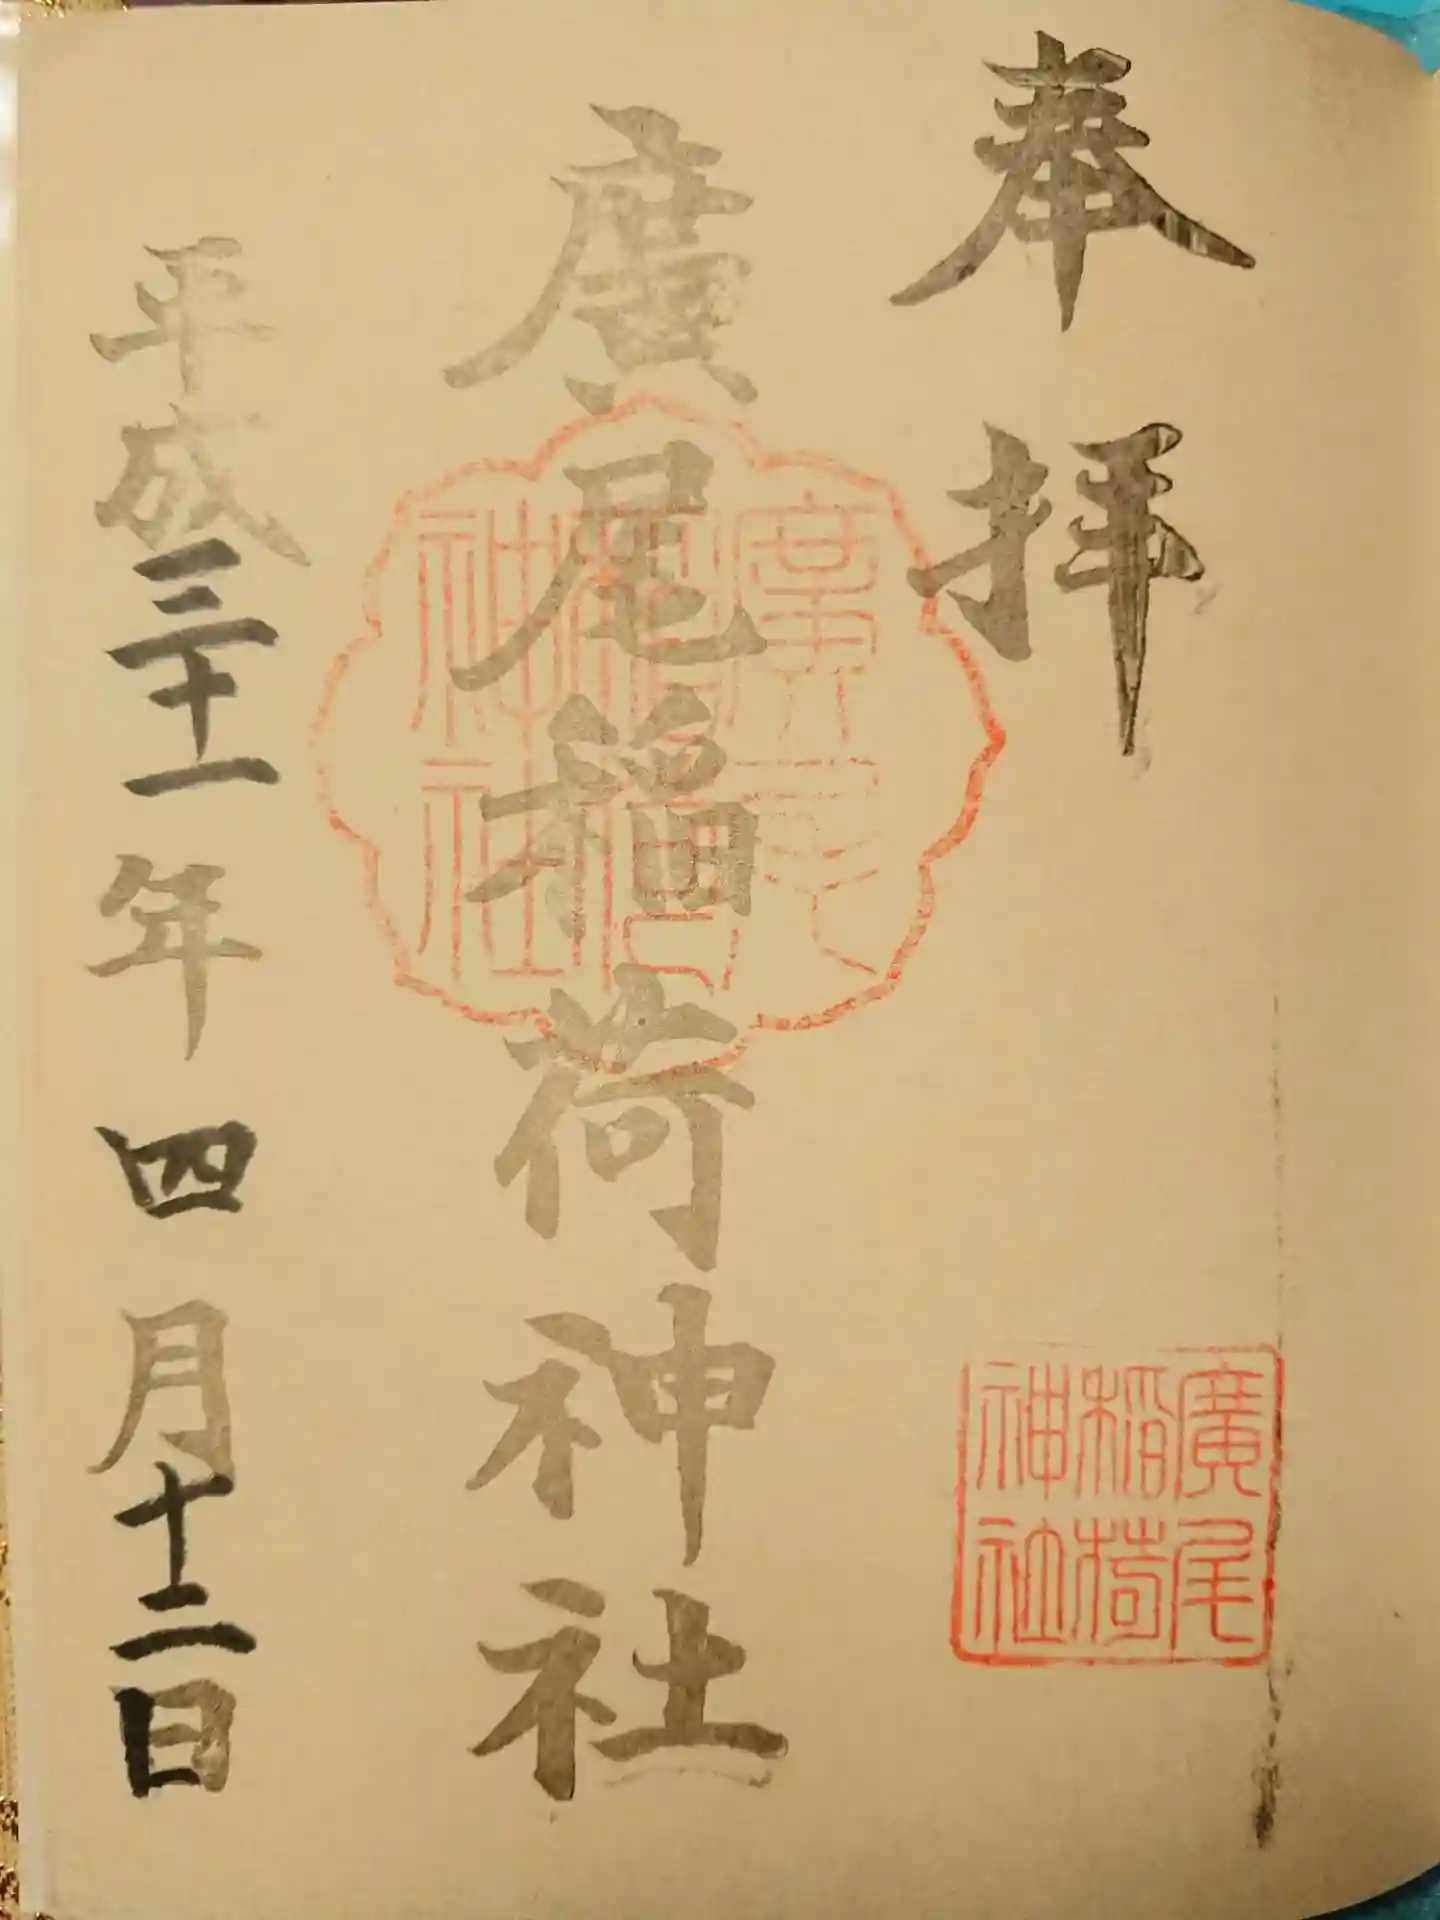 奉拝
廣尾稲荷神社
平成三十一年四月十二日
廣尾
稲荷
神社
廣尾
稲荷
神社